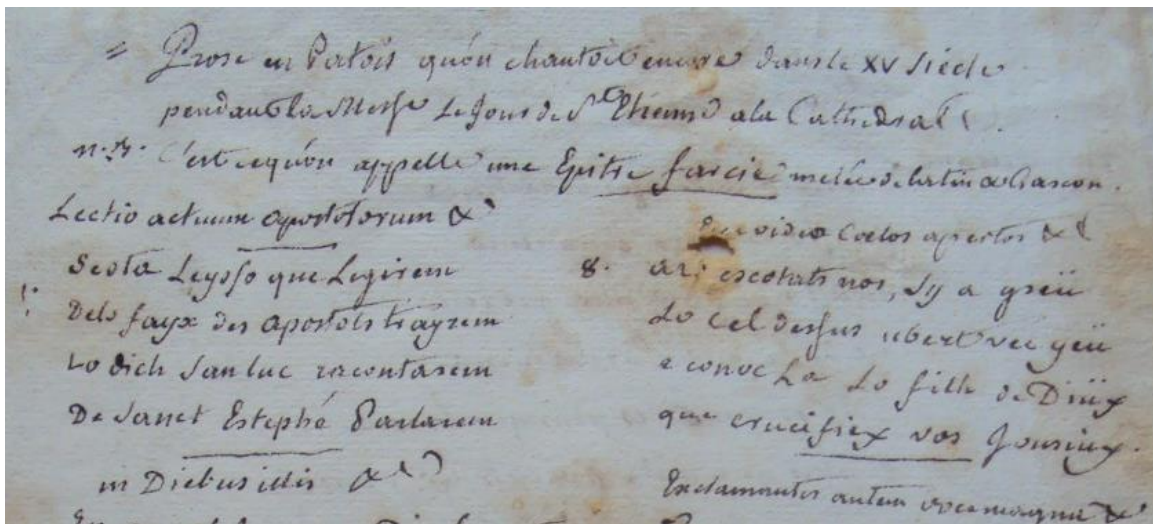 = Prose en Patois qu'on chantoit encore dans le XV siécle
pendant la Messe Le Jour de St Etienne a la Cathedral
n.B. C'est cequ'on appelle une Epitre farcie melée de latin & Gascon.
Lectio actuum apostolorum &c
Sesta Leysso que Legirem
Dels fayx des apostols trayrem
Lo dich San luc racontarem
De Sanct Estephé Parlarem
in Diebus illis &c
video Coelos apertos &c
8. ar escotats nos, Sy a greü
Lo cel dessus ubert vec yeü
e conoc La Lo fill de Diüx
que crucifiex vos Jousiux.
Exclamantes autem voce magna &c